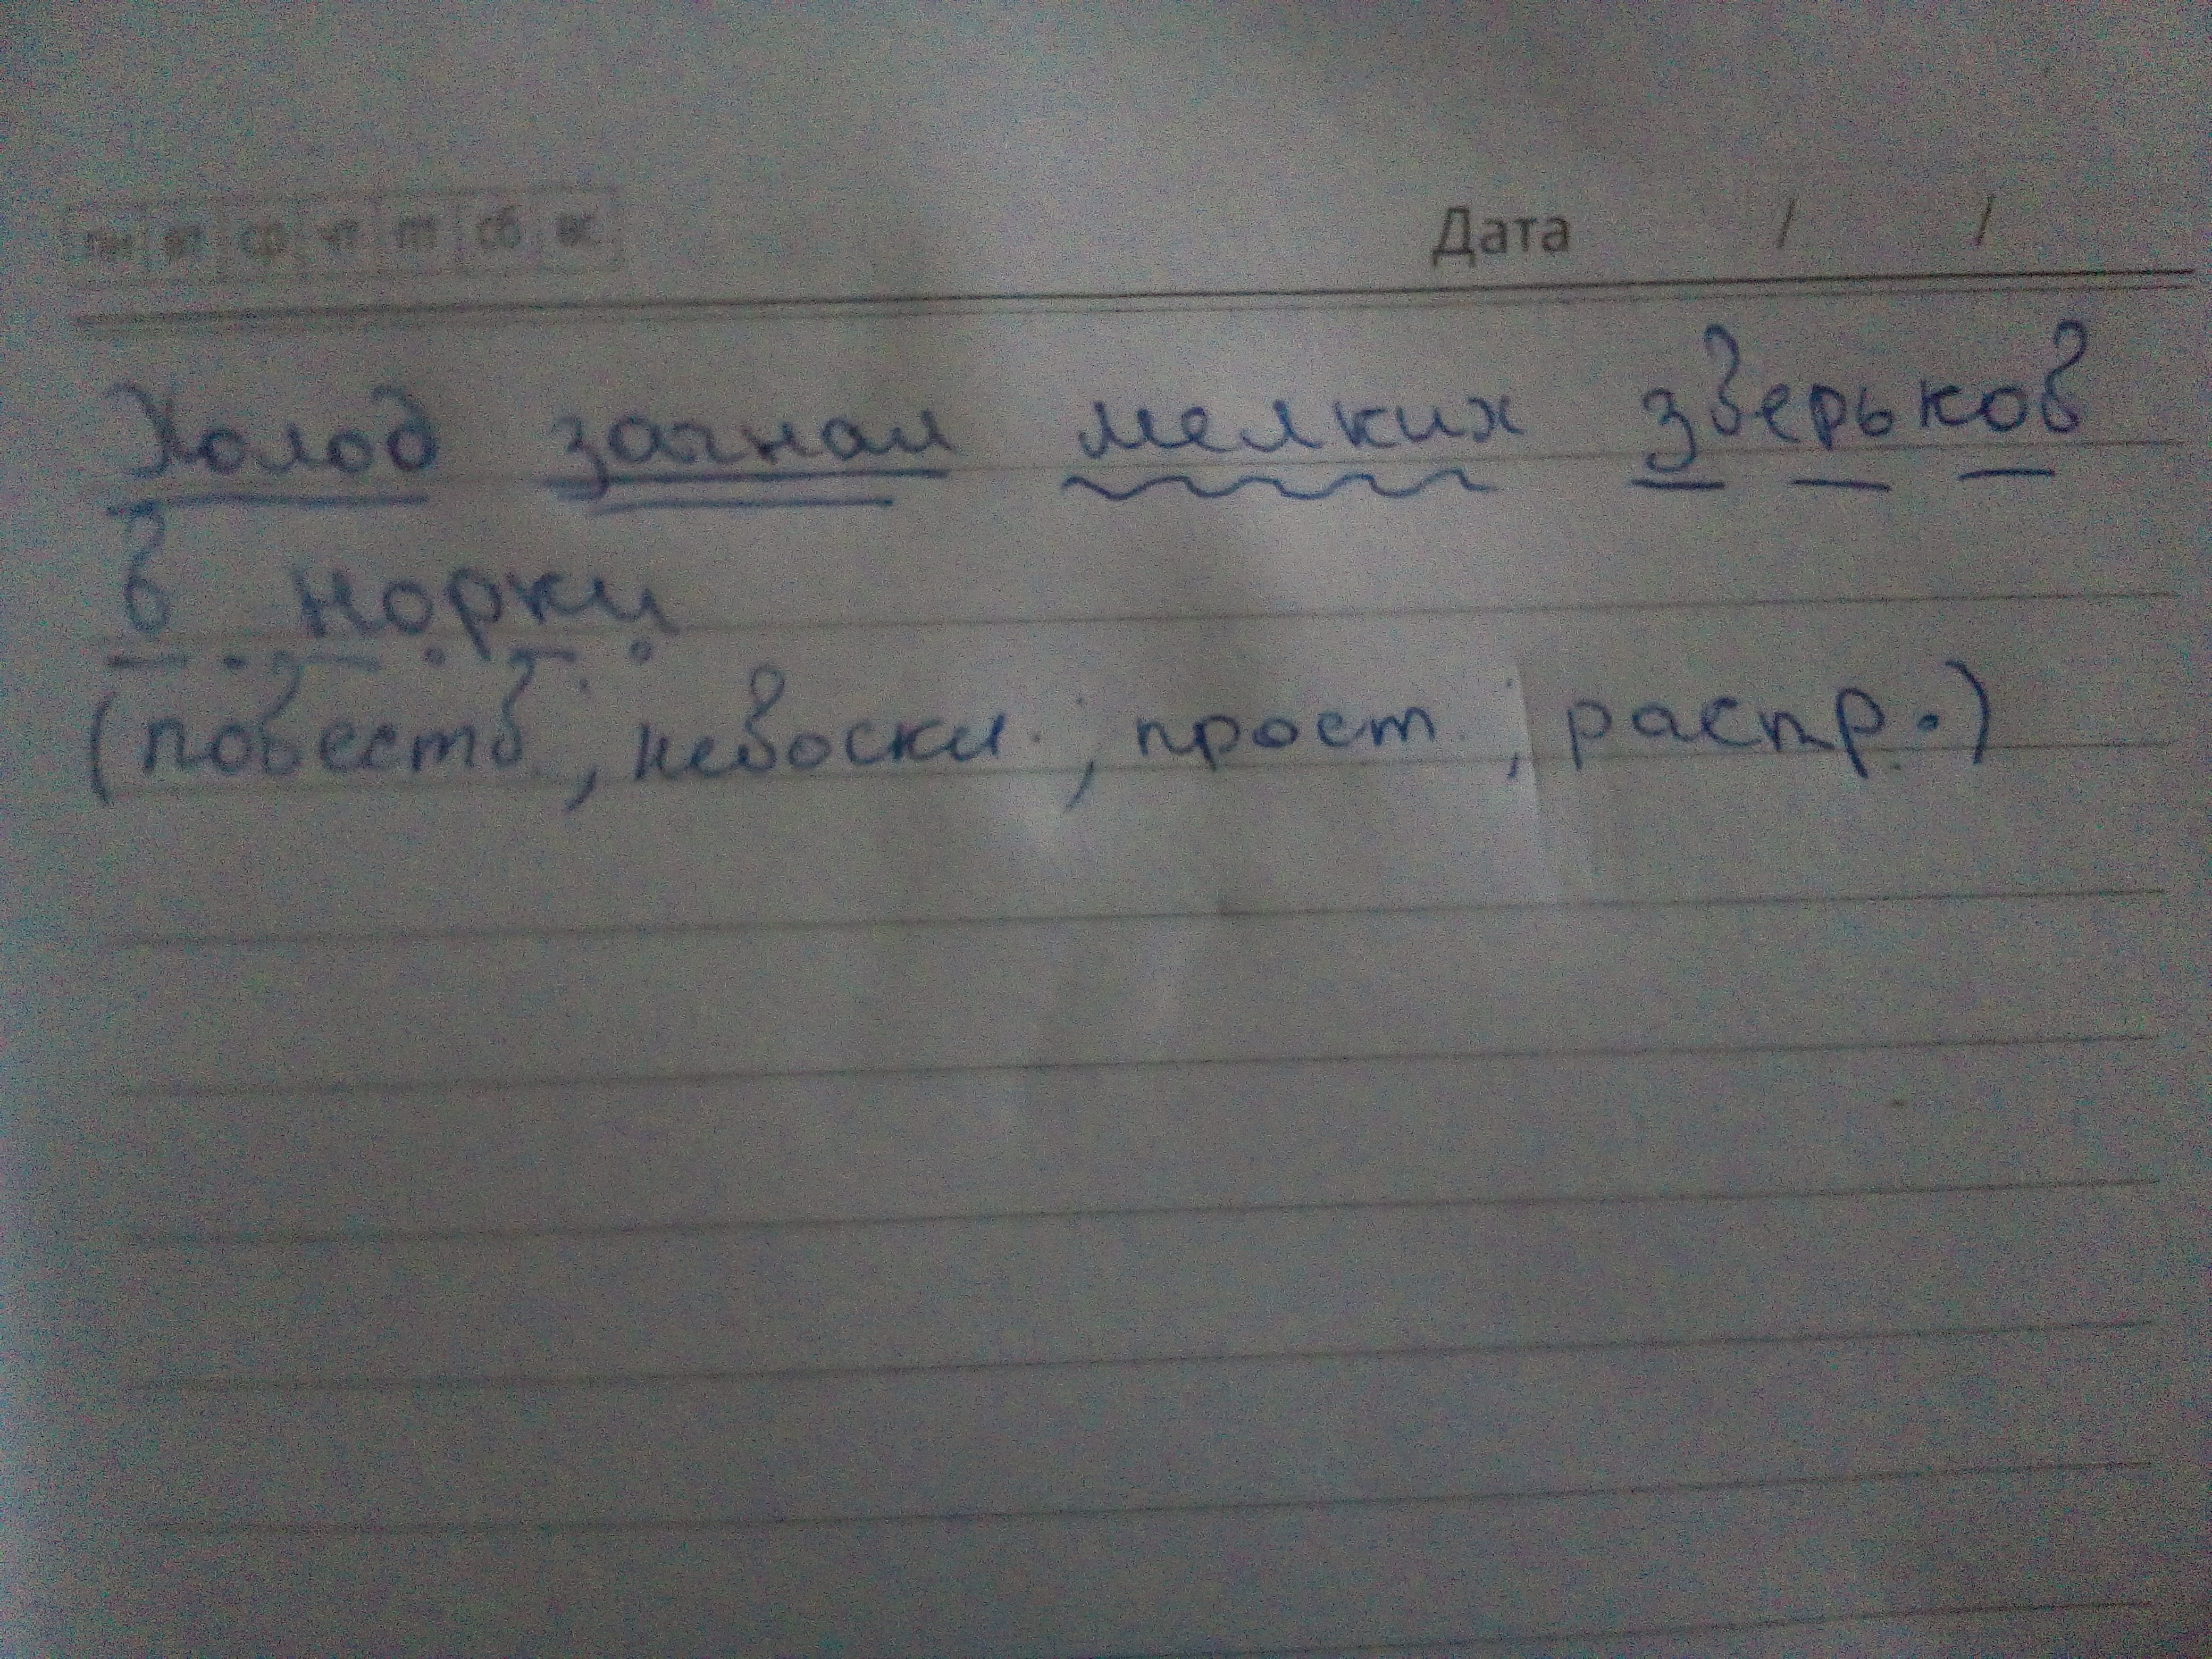 пн вт ср чт пт сб вс
Дата / /
Холод загнал мелких зверьков
в норки
(повеств., невоскл., прост., распр.)